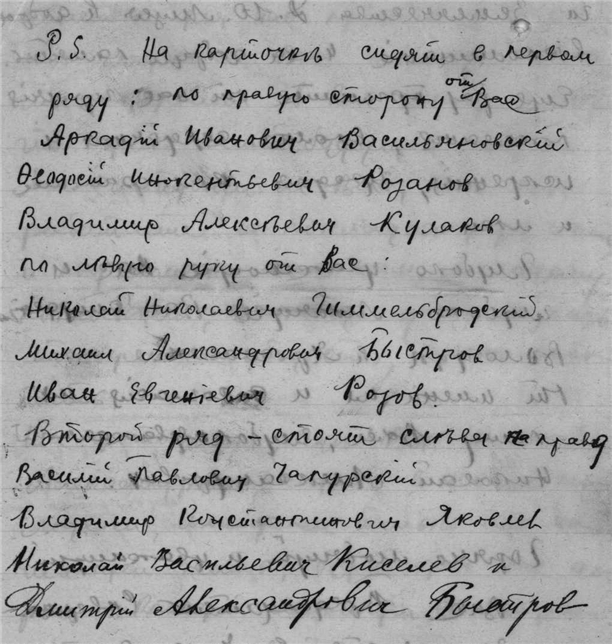 P.S. На карточкѣ сидят в первом
ряду: по правую сторону от Вас
Аркадій Иванович Васильяновскій
Ѳеодосій Инокентьевич Розанов
Владимир Алексѣевич Кулаков
по лѣвую руку от Вас:
Николай Николаевич Гиммельбродский
Михаил Александрович Быстров
Иван Евгеніевич Розов.
Второй ряд – стоят слѣва на право
Василій Павлович Чапурскій
Владимир Константинович Яковлев
Николай Васильевич Киселев и
Дмитрій Александрович Быстров